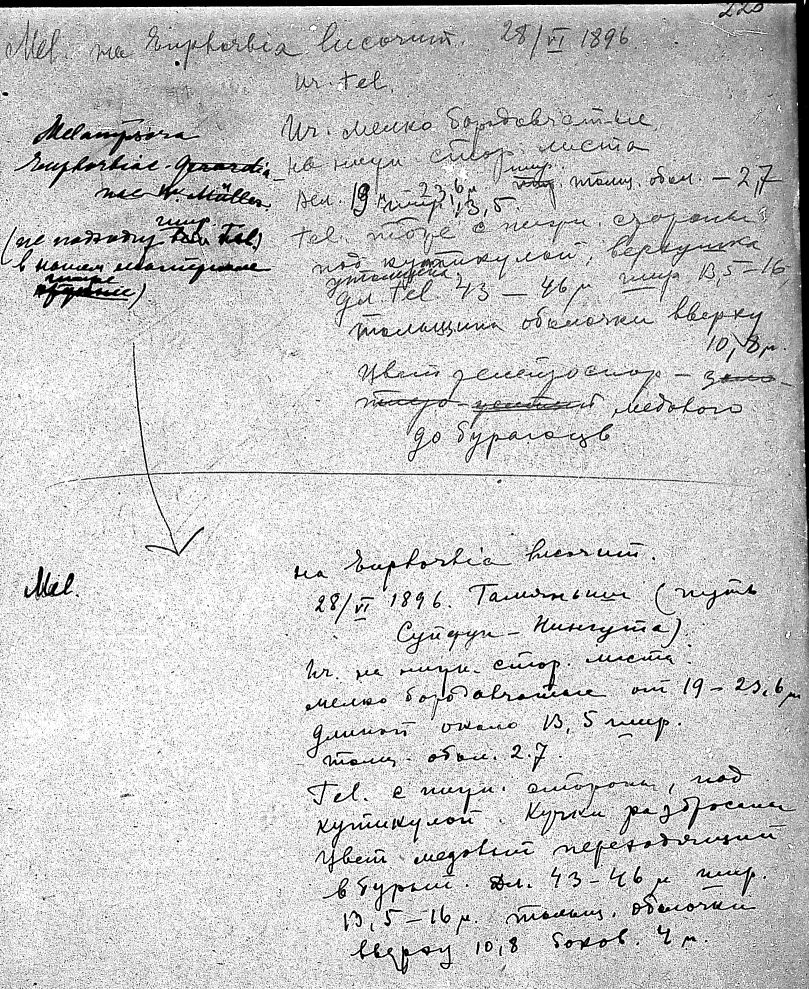 220
Mel. на Euphorbia lucorum. 28/VI 1896.
Ur. tel.
Melampsora
Euphorbiae Gerardia-
nae W. Müller.
(не подходит шир. tel.)
в нашем материале
Ur. мелко бородавчатые
на нижн. стор. листа
дл. 19 – 23,6 μ шир. 13,5 шир. толщ. обол. – 2,7
tel. тоже с нижн. стороны
под кутикулой, верхушка
утолщена
Дл. tel. 43 – 46 μ шир 13,5 – 16
толщина оболочки вверху
10,8 μ.
Цвет телейтоспор – золо-
медового
до бурого цв
Mel.
на Euphorbia lucorum.
28/VI 1896. (путь
Суйфун – Нингута)
Ur. на нижн. стор. листа.
мелко бородавчатые от 19 – 23,6 μ
длиной около 13,5 шир.
толщ. обол. 2.7.
Tel. с нижн. стороны, под
кутикулой. Кучки разбросаны
Цвет медовый переходящий
в бурый. Дл. 43 – 46 μ шир.
13,5 – 16 μ. толщ. оболочки
вверху 10,8 боков. 4 μ.